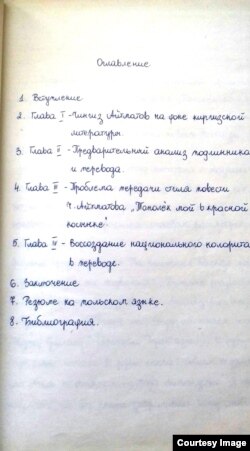 Оглавление
1. Вступление
2. Глава I - Чингиз Айтматов на фоне киргизской
литературы.
3. Глава II - Предварительный анализ подлинника
и перевода.
4. Глава III - Проблема передачи стиля повести
Ч. Айтматова „Тополёк мой в красной
косынке"
5. Глава IV - Воссоздание национального колорита
в переводе.
6. Заключение
7. Резюме на польском языке.
8. Библиография.
Courtesy Image